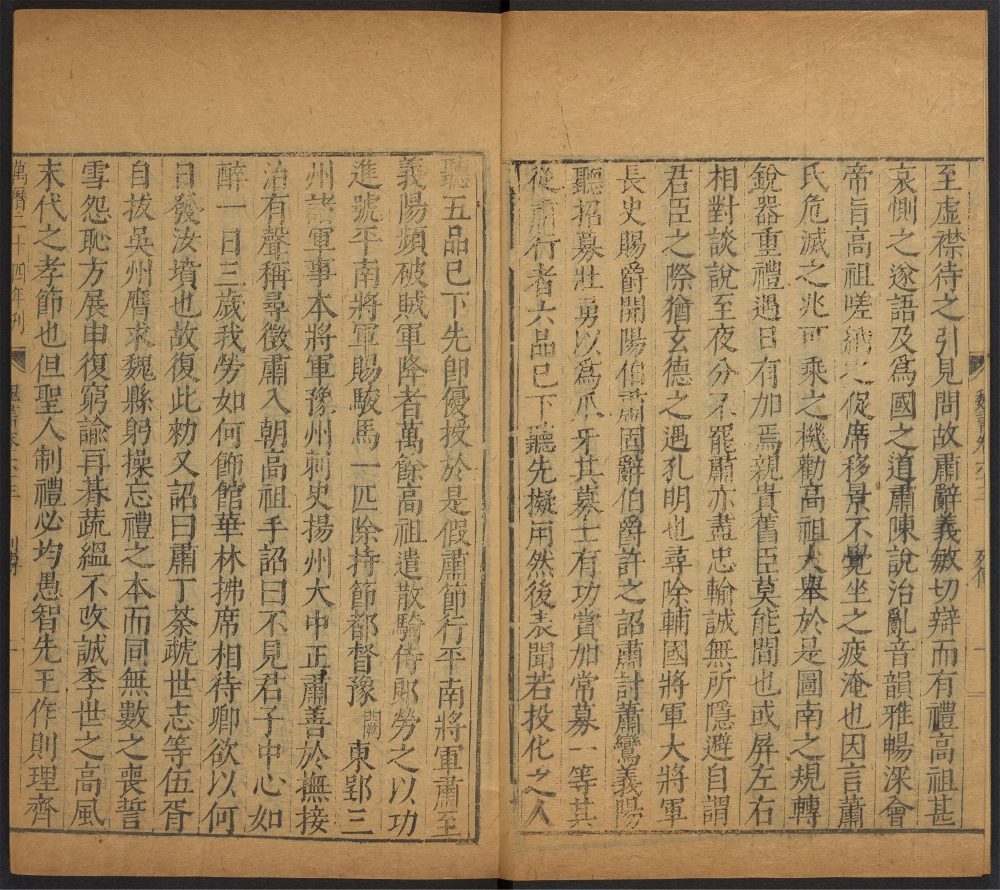 魏書卷六十三　列傳
至虛襟待之引見問故肅辭義敏切辯而有禮高祖甚
哀惻之遂語及爲國之道肅陳說治亂音韻雅暢深會
帝旨高祖嗟納之促席移景不覺坐之疲淹也因言蕭
氏危滅之兆可乘之機勸高祖大舉於是圖南之規轉
銳器重禮遇日有加焉親貴舊臣莫能間也或屏左右
相對談說至夜分不罷肅亦盡忠輸誠無所隱避自謂
君臣之際猶玄德之遇孔明也尋除輔國將軍大將軍
長史賜爵開陽伯肅固辭伯爵許之詔肅討蕭鸞義陽
聽招募壯勇以爲爪牙其募士有功賞加常募一等其
從肅行者六品已下聽先擬用然後表聞若投化之人
聽五品已下先卽優授於是假肅節行平南將軍肅至
義陽頻破賊軍降者萬餘高祖遣散騎侍郎勞之以功
進號平南將軍賜駿馬一匹除持節都督豫闕東郢三
州諸軍事本將軍豫州刺史揚州大中正肅善於撫接
治有聲稱尋徵肅入朝高祖手詔曰不見君子中心如
醉一日三歲我勞如何飾館華林拂席相待卿欲以何
日發汝墳也故復此勑又詔曰肅丁荼虣世志等伍胥
自拔吳州膺求魏縣躬操忘禮之本而同無數之喪誓
雪怨恥方展申復窮諭再朞蔬縕不改誠季世之高風
末代之孝節也但聖人制禮必均愚智先王作則理齊
萬曆二十四年刊　魏書卷六十三　列傳